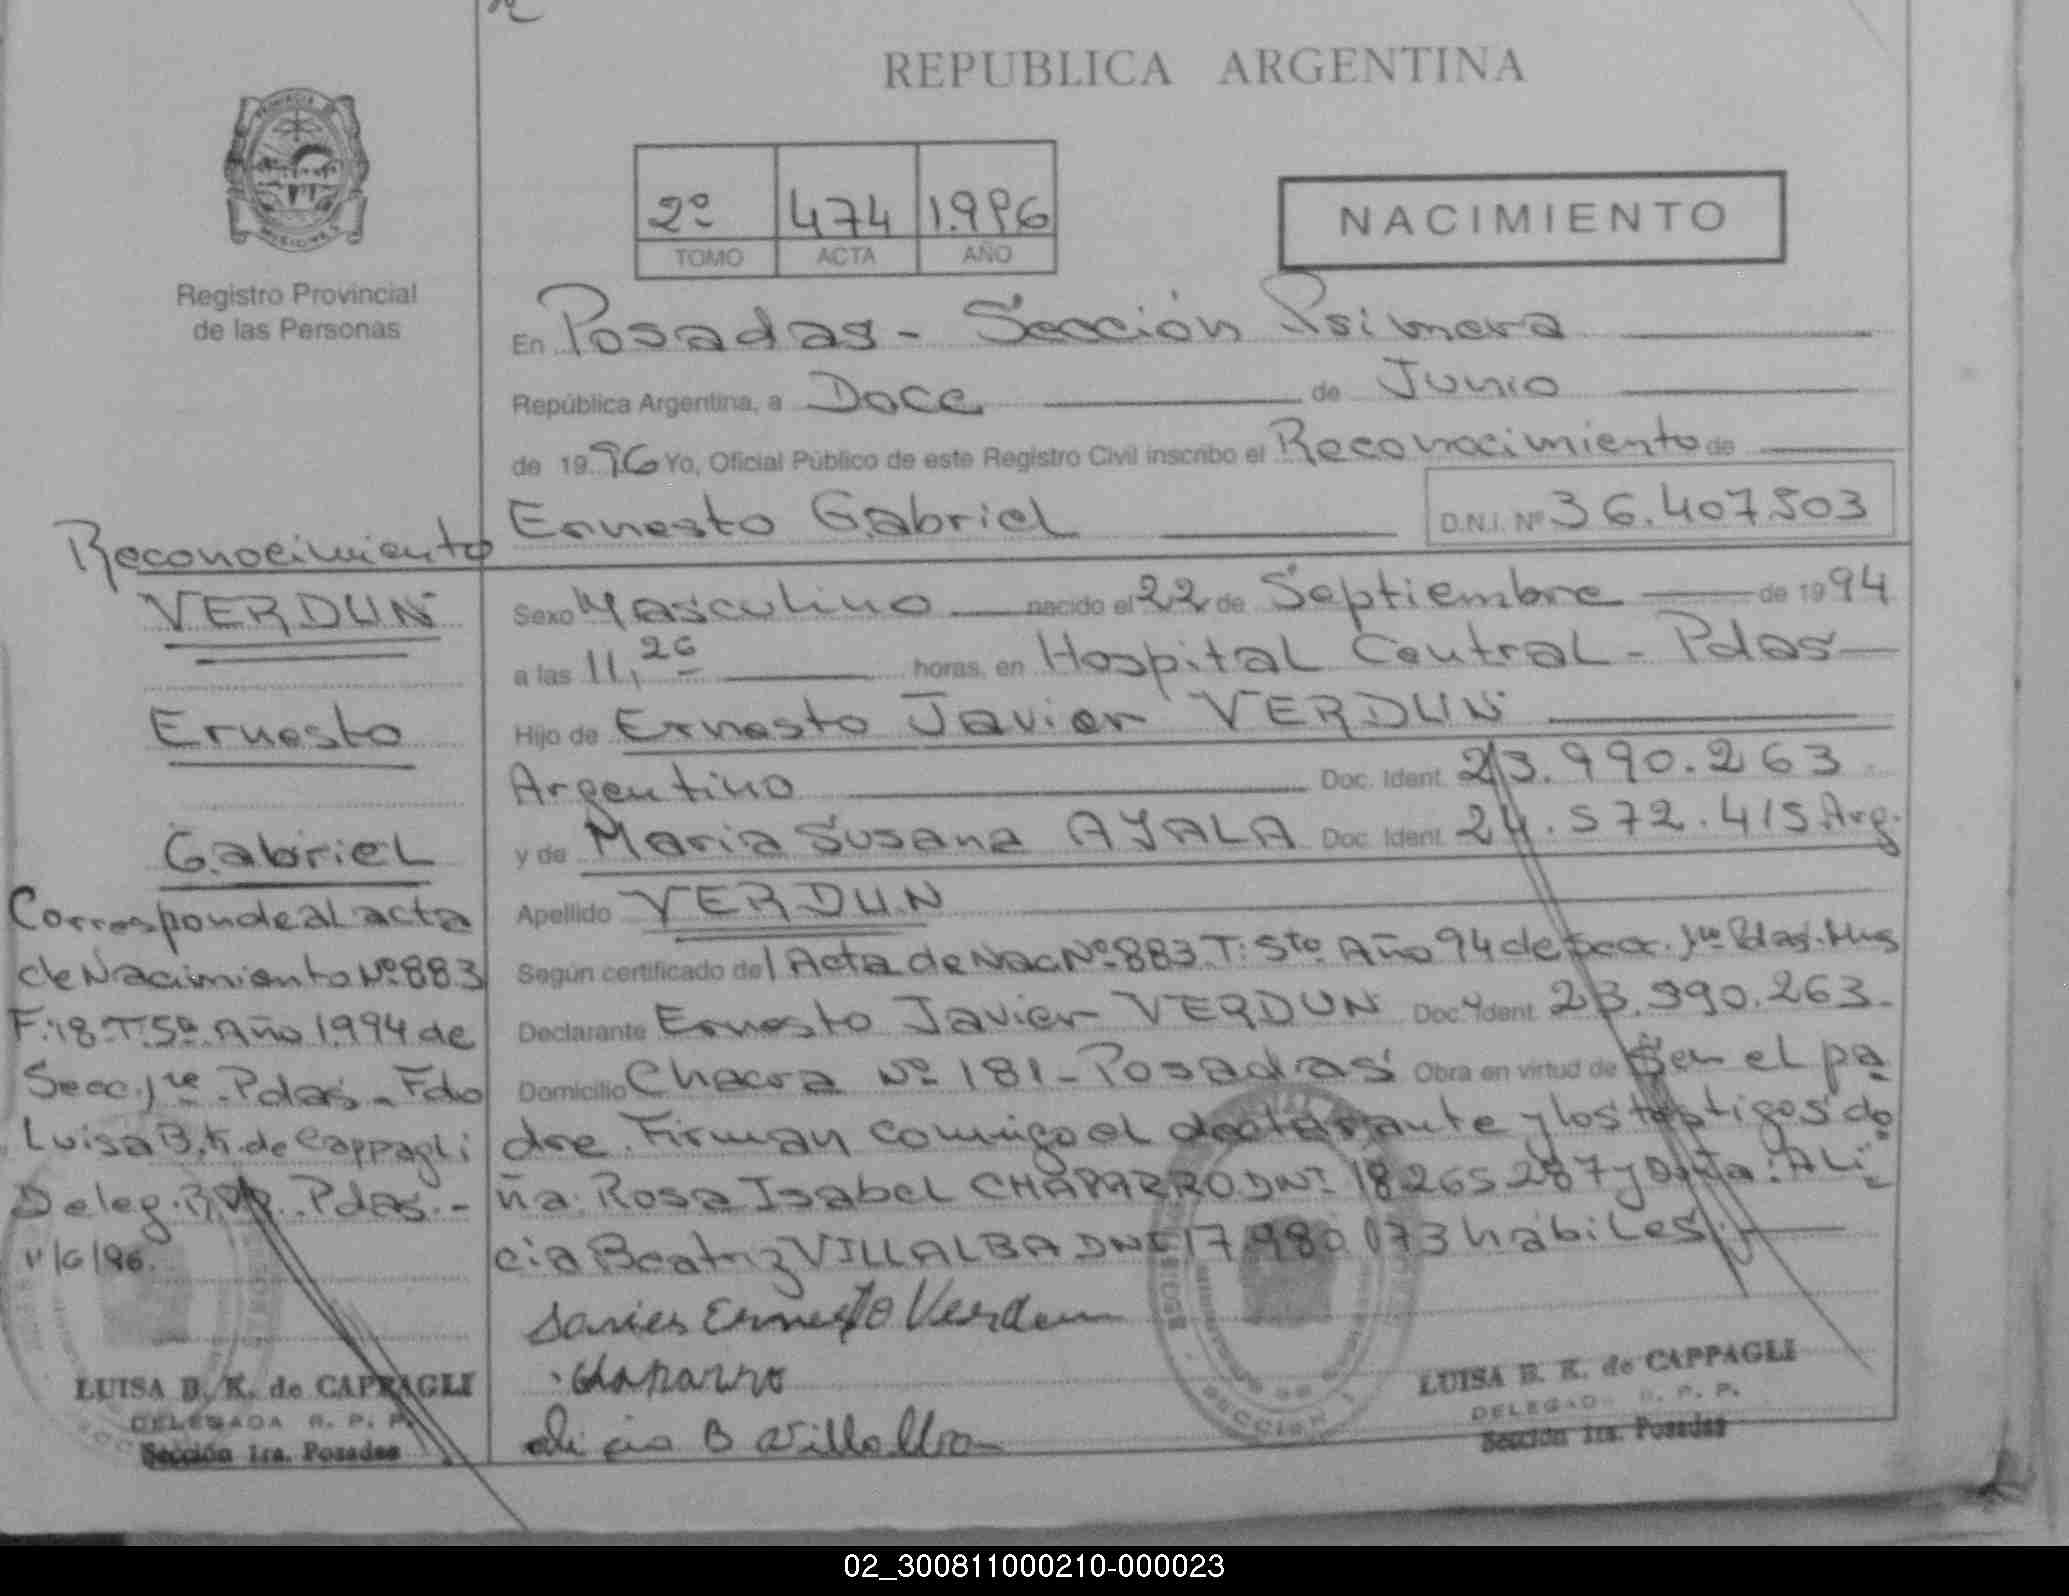 REPUBLICA ARGENTINA
PROVINCIA DE
MISIONES
Registro Provincial
de las Personas
2º 474 1.996
TOMO ACTA AÑO
NACIMIENTO
En Posadas - Sección Primera
República Argentina, a Doce de Junio
de 1996 Yo, Oficial Público de este Registro Civil inscribo el Reconocimiento de
Ernesto Gabriel D.N.I. Nº 36.407.503
Sexo Masculino nacido el 22 de Septiembre de 1994
a las 11,26 horas, en Hospital Central - Pdas
Hijo de Ernesto Javier VERDUN
Argentino Doc. Ident. 23.990.263
y de Maria Susana AYALA Doc. Ident. 24.572.415 Arg.
Apellido VERDUN
Según certificado del Acta de Nac Nº 883 T: 5to Año 94 de Secc. 1ra Pdas. Mns
Declarante Ernesto Javier VERDUN Doc. Ident. 23.990.263-
Domicilio Chacra Nº 181 - Posadas Obra en virtud de Ser el pa
dre. Firman conmigo el declarante y los testigos do
ña: Rosa Isabel CHAPARRO DNI 18265287 y Doña: ALi
cia Beatriz VILLALBA DNI 17.980.173 habiles
Javier Ernesto Verdun
Chaparro
Alicia B Villalba
LUISA B. K. de CAPPAGLI
DELEGADA R. P. P.
Sección 1ra. Posadas
Reconocimiento
VERDUN
Ernesto
Gabriel
Corresponde al acta
de Nacimiento Nº 883
F: 18 T: 5º Año 1.994 de
Secc. 1ra - Pdas - Fdo
Luisa B. K. de Cappagli
Deleg. R.P.P. Pdas.-
11/6/96.
LUISA B. K. de CAPPAGLI
DELEGADA R. P. P.
Sección 1ra. Posadas
SECCION 1
02_300811000210-000023